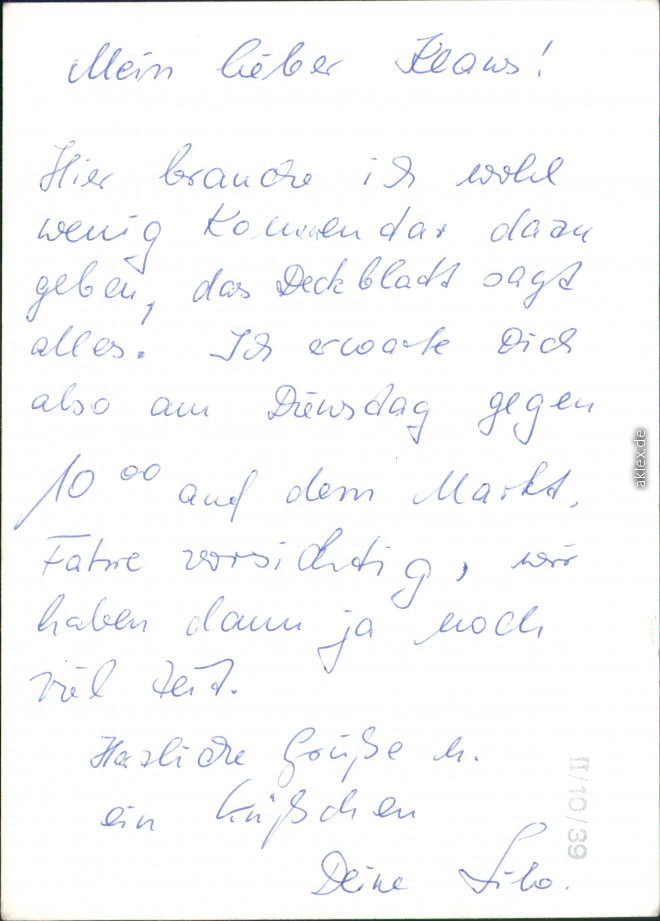 Mein lieber Klaus!
Hier brauche ich wohl
wenig Kommentar dazu
geben, das Deckblatt sagt
alles. Ich erwarte Dich
also am Dienstag gegen
10 00 auf dem Markt,
Fahre vorsichtig, wir
haben dann ja noch
viel Zeit.
Herzliche Grüße u.
ein Küßchen
Deine
II/10/39
aklex.de